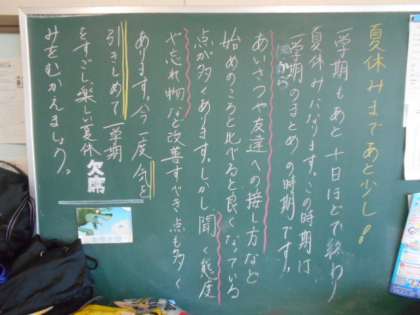 夏休みまであと少し!
一学期もあと十日ほどで終わり
夏休みになります。この時期は
一学期のまとめの時期です。
だから
あいさつや友達への接し方など
始めのころと比べると良くなっている
点が多くあります。しかし聞く態度
や忘れ物など改善すべき点も多く
あります。今一度気を
引きしめて一学期
をすごし楽しい夏休
みをむかえましょう。
欠席